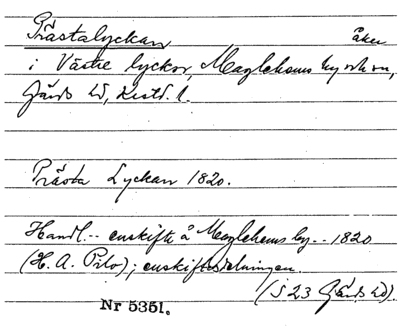 Prästalyckan åker
i Västre lyckor, Maglehems by och sn,
Gärds hd, Krist. l.
Prästa Lyckan 1820.
Handl. -- enskifte å Maglehems by -- 1820
(H. A. Pilo); enskiftesdelningen.
(S 23 Gärds hd).
Nr 5351.